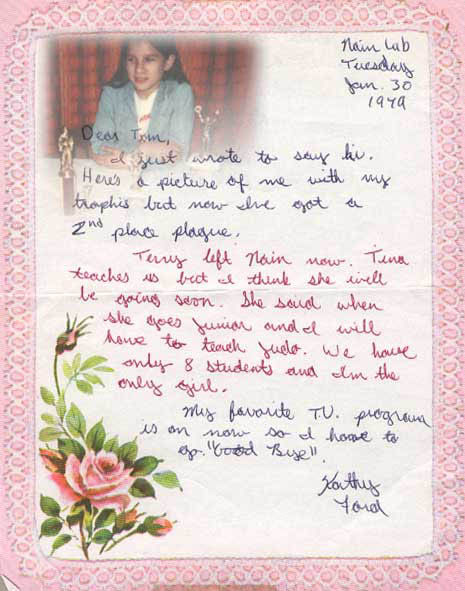 Nain Lab
Tuesday
Jan. 30
1979
Dear Tom,
I just wrote to say hi.
Here's a picture of me with my
trophis but now I've got a
2nd place plaque.
Terry left Nain now. Tina
teaches us but I think she will
be going soon. She said when
she goes Junior and I will
have to teach judo. We have
only 8 students and I'm the
only girl.
My favorite T.V. program
is on now so I have to
go. "Good Bye".
Kathy
Ford